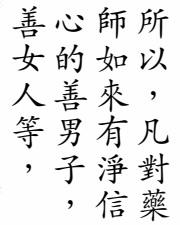 所以，凡對藥
師如來有淨信
心的善男子，
善女人等，